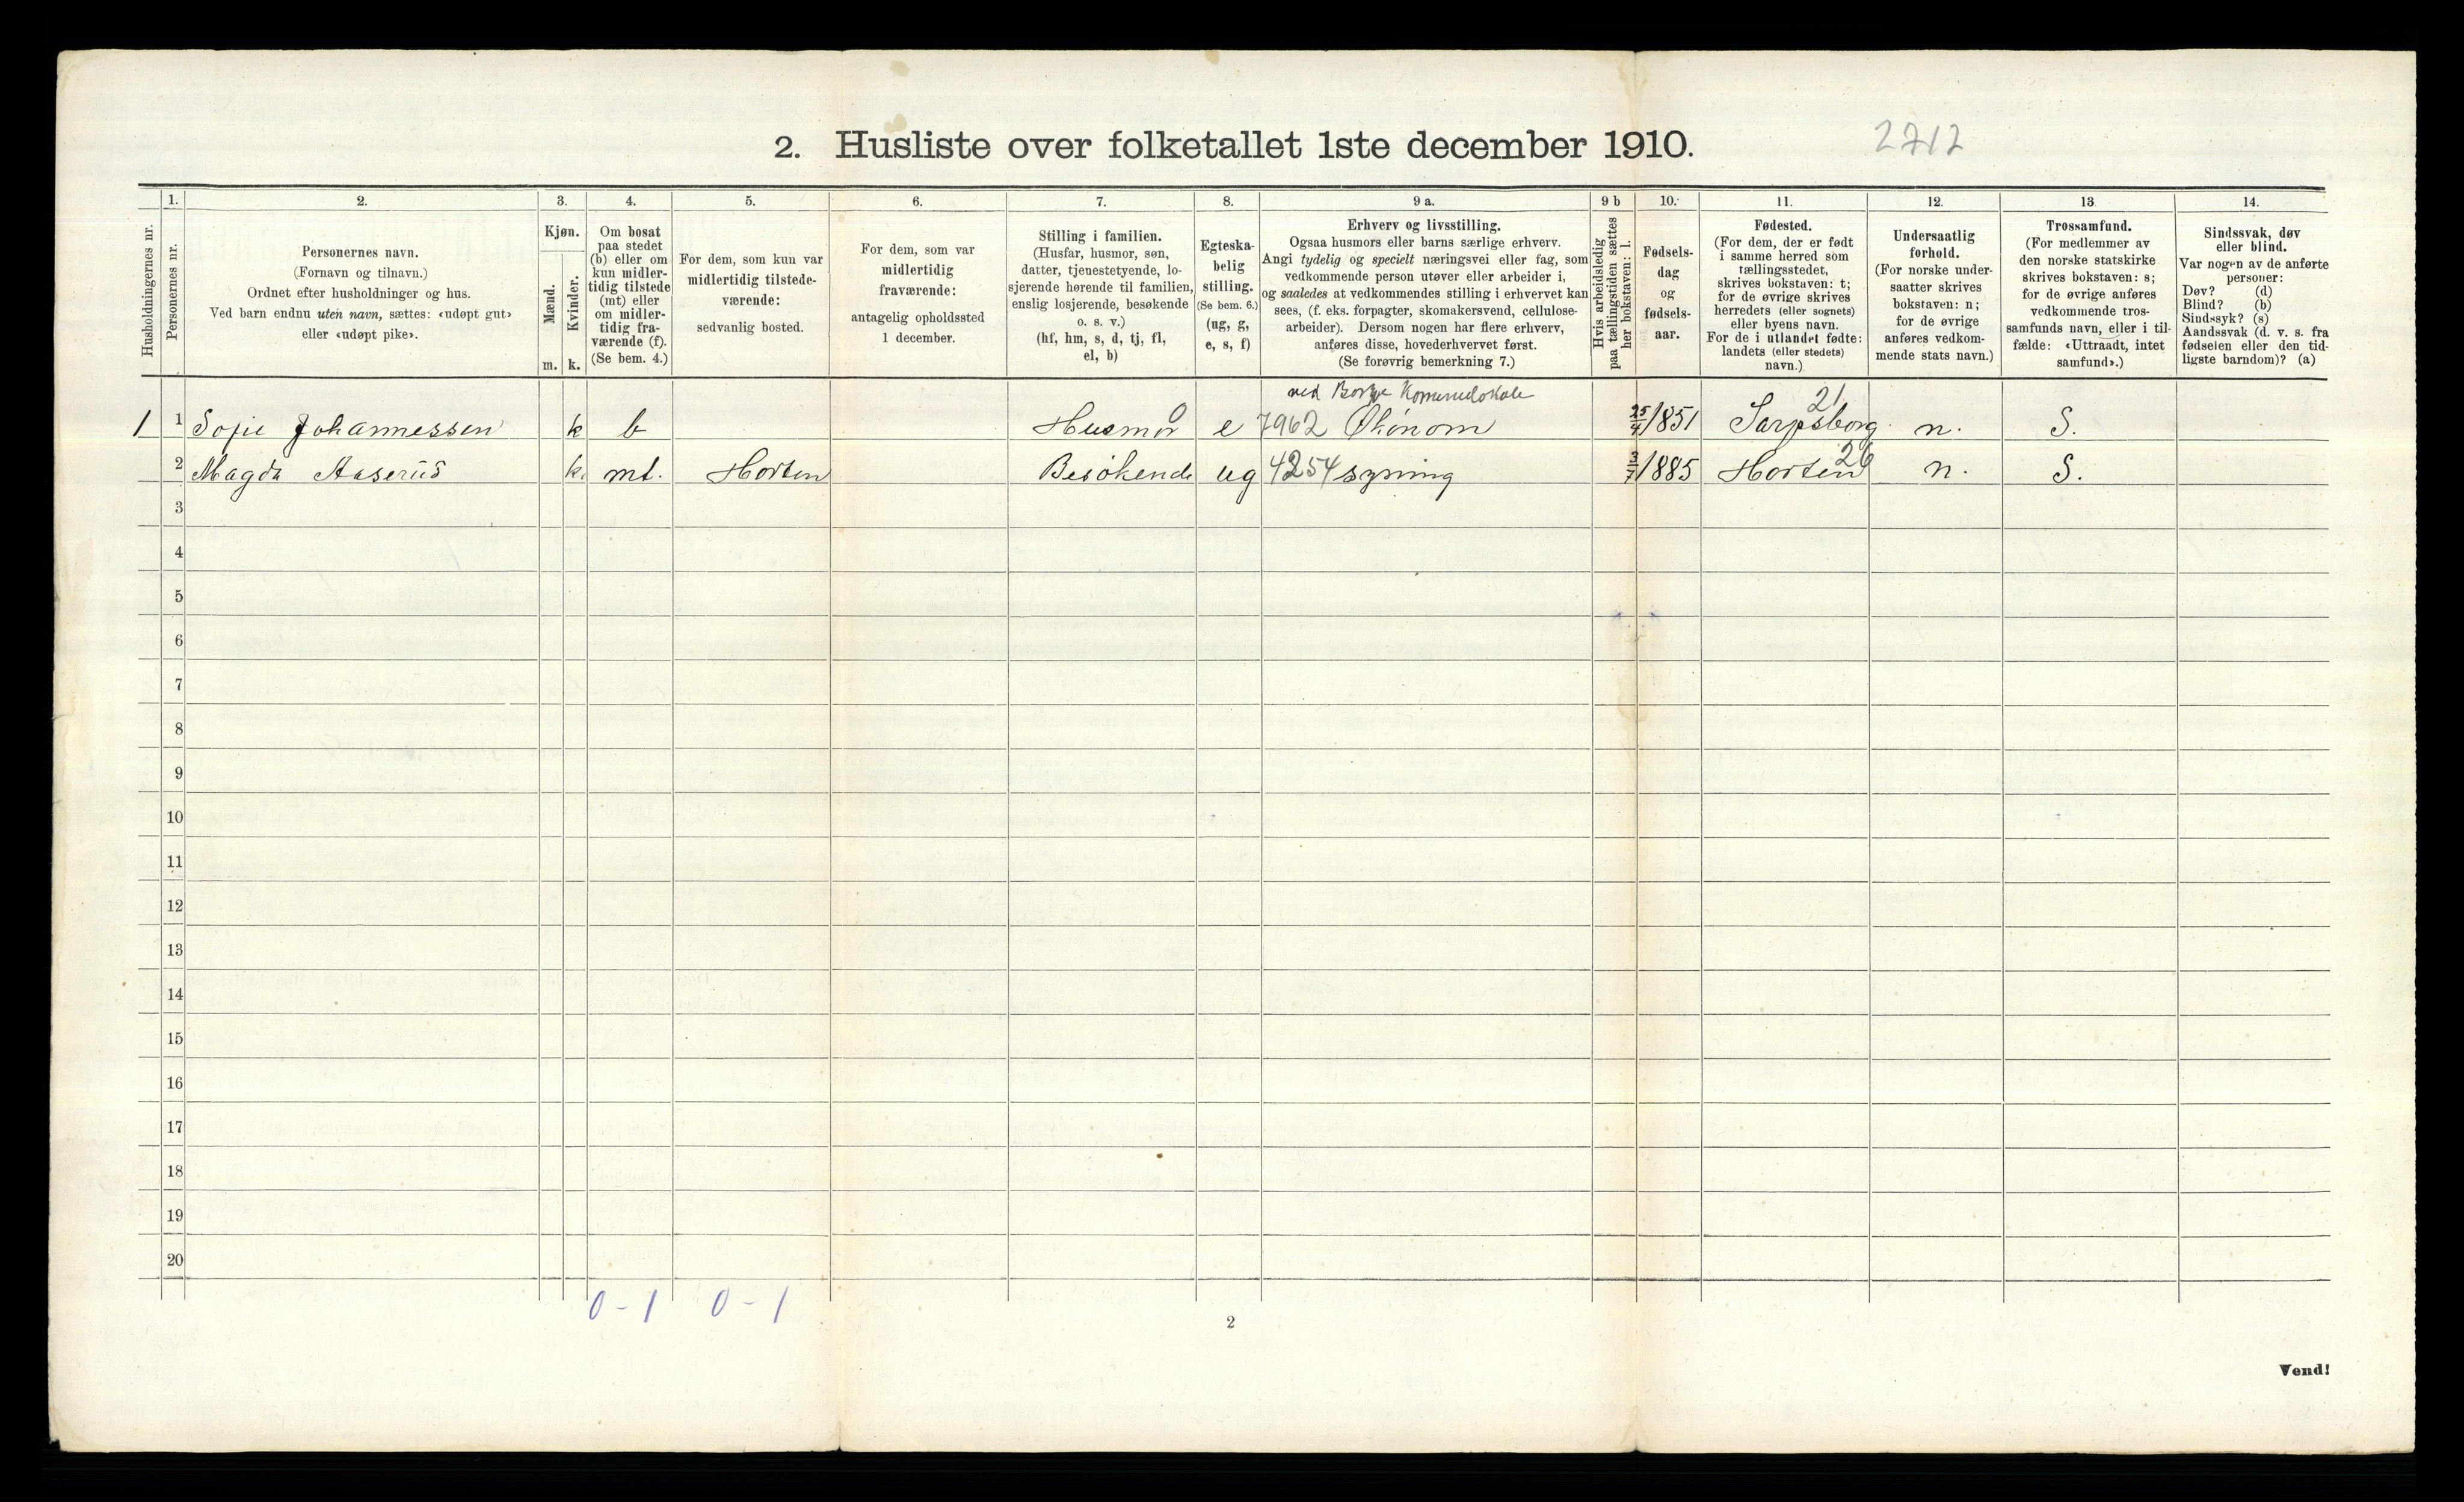 2. Husliste over folketallet 1ste december 1910.
2712
Husholdningernes nr.
1.
Personernes nr.
2.
Personernes navn.
(Fornavn og tilnavn.)
Ordnet efter husholdninger og hus.
Ved barn endnu uten navn, sættes: «udøpt gut»
eller «udøpt pike».
3.
Kjøn.
Mænd.
Kvinder.
m. k.
4.
Om bosat
paa stedet
(b) eller om
kun midler-
tidig tilstede
(mt) eller
om midler-
tidig fra-
værende (f).
(Se bem. 4.)
5.
For dem, som kun var
midlertidig tilstede-
værende:
sedvanlig bosted.
6.
For dem, som var
midlertidig
fraværende:
antagelig opholdssted
1 december.
7.
Stilling i familien.
(Husfar, husmor, søn,
datter, tjenestetyende, lo-
sjerende hørende til familien,
enslig losjerende, besøkende
o. s. v.)
(hf, hm, s, d, tj, fl,
el, b)
8.
Egteska-
belig
stilling.
(Se bem. 6.)
(ug, g,
e, s, f)
9 a.
Erhverv og livsstilling.
Ogsaa husmors eller barns særlige erhverv.
Angi tydelig og specielt næringsvei eller fag, som
vedkommende person utøver eller arbeider i,
og saaledes at vedkommendes stilling i erhvervet kan
sees, (f. eks. forpagter, skomakersvend, cellulose-
arbeider). Dersom nogen har flere erhverv,
anføres disse, hovederhvervet først.
(Se forøvrig bemerkning 7.)
9 b
Hvis arbeidsledig
paa tællingstiden sættes
her bokstaven: l.
10.
Fødsels-
dag
og
fødsels-
aar.
11.
Fødested.
(For dem, der er født
i samme herred som
tællingsstedet,
skrives bokstaven: t;
for de øvrige skrives
herredets (eller sognets)
eller byens navn.
For de i utlandet fødte:
landets (eller stedets)
navn.)
12.
Undersaatlig
forhold.
(For norske under-
saatter skrives
bokstaven: n;
for de øvrige
anføres vedkom-
mende stats navn.)
13
Trossamfund.
(For medlemmer av
den norske statskirke
skrives bokstaven: s;
for de øvrige anføres
vedkommende tros-
samfunds navn, eller i til-
fælde: «Uttraadt, intet
samfund».)
14.
Sindssvak, døv
eller blind.
Var nogen av de anførte
personer:
Døv? (d)
Blind? (b)
Sindssyk? (s)
Aandssvak (d. v. s. fra
fødselen eller den tid-
ligste barndom)? (a)
ved Borge Kommunelokale
1 1 Sofie Johannessen k b Husmor 0 e 7962 Økonom 25/4 1851 Sarpsborg 21 n. S.
2 Magda Aaserud k. mt. Horten Besøkende ug 4254 syning 3/7 1885 Horten 26 n. S.
3
4
5
6
7
8
9
10
11
12
13
14
15
16
17
18
19
20
0 - 1 0 - 1
2
Vend!